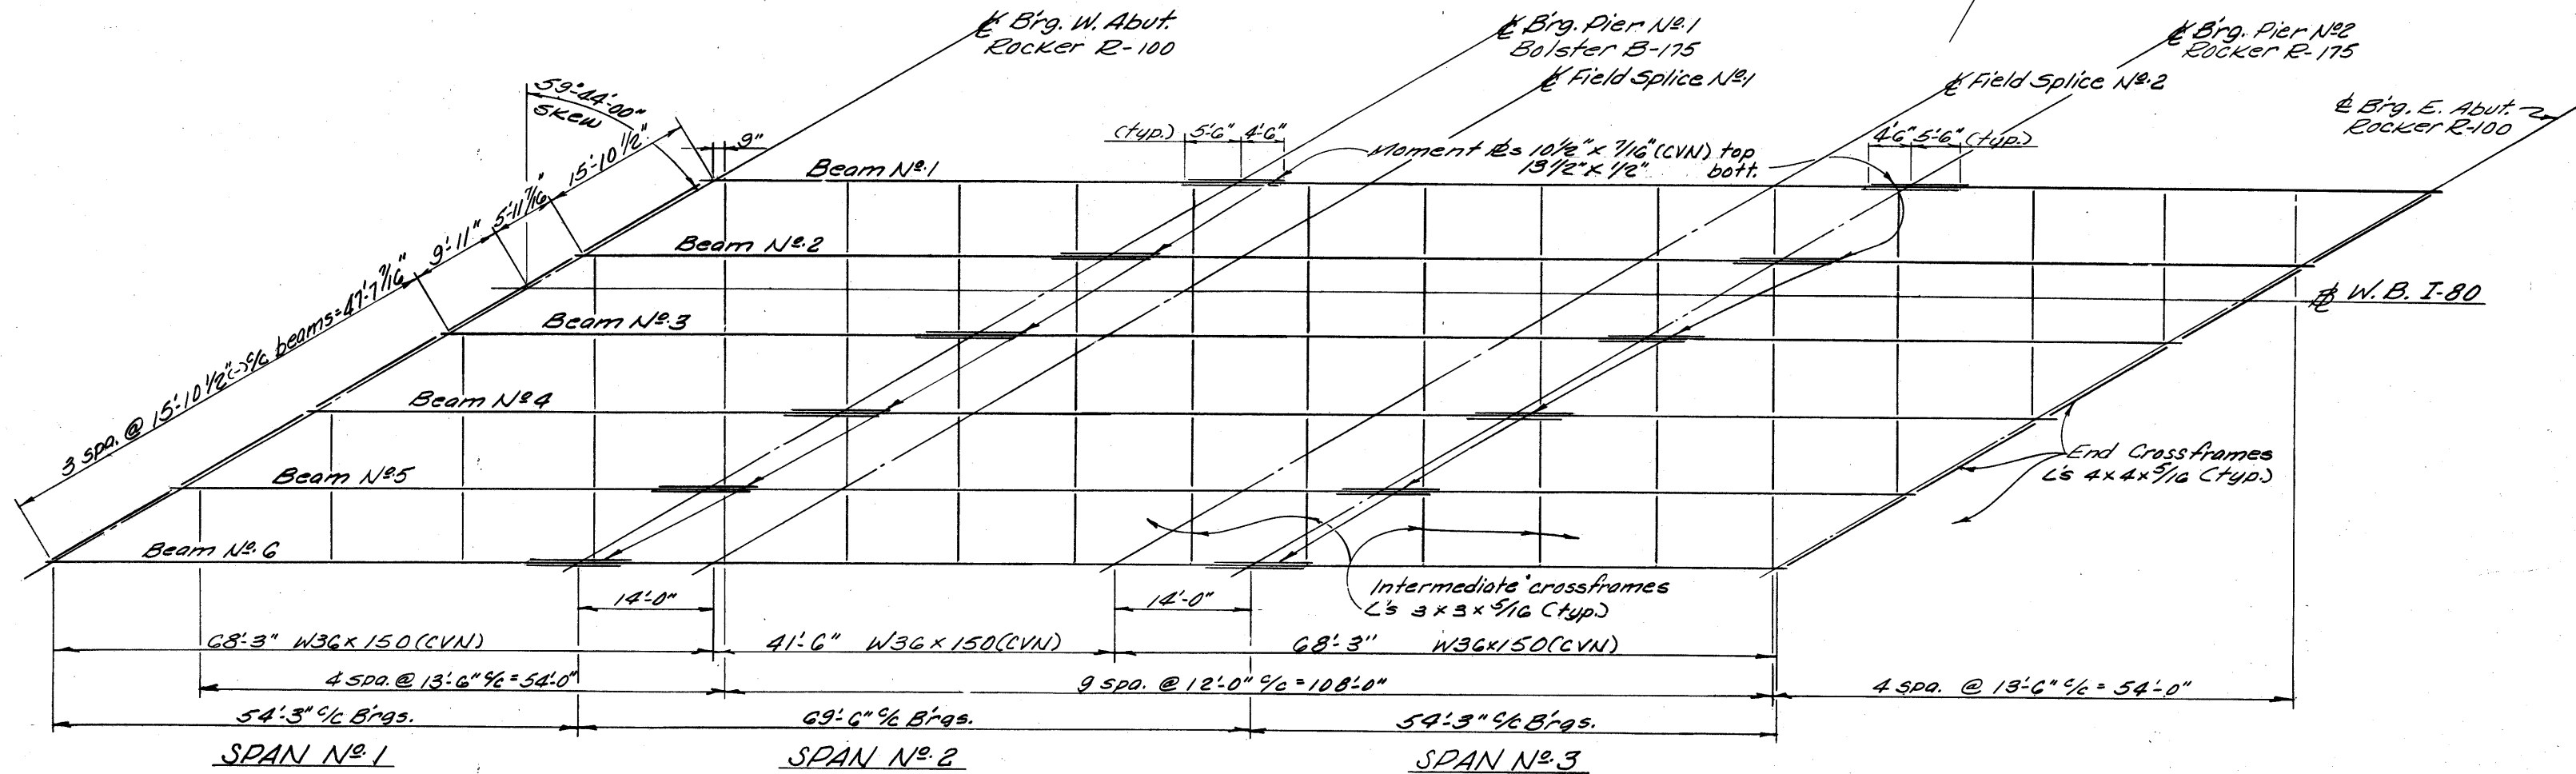 ℄ Br'g. W. Abut.
Rocker R-100
℄ Br'g. Pier Nº.1
Bolster B-175
℄ Field Splice Nº.1
℄ Br'g. Pier Nº2
Rocker R-175
℄ Field Splice Nº.2
℄ Br'g. E. Abut.
Rocker R-100
59°-44'-00"
Skew
15'-10 1/2"
9"
(typ.) 5'-6" 4'-6"
4'-6" 5'-6" (typ.)
Moment ℞s 10 1/2" x 7/16" (CVN) top
13 1/2" x 1/2" bott.
5'-11 7/16"
9'-11"
3 spa. @ 15'-10 1/2"(-) c/c beams = 47'-7 7/16"
Beam Nº.1
Beam Nº.2
Beam Nº.3
Beam Nº4
Beam Nº.5
Beam Nº.6
W. B. I-80
End Crossframes
L's 4x4x5/16 (typ.)
Intermediate crossframes
L's 3 x 3 x 5/16 (typ.)
14'-0"
14'-0"
68'-3" W36 x 150 (CVN)
41'-6" W36 x 150 (CVN)
68'-3" W36x150 (CVN)
4 spa. @ 13'-6" c/c = 54'-0"
9 spa. @ 12'-0" c/c = 108'-0"
4 spa. @ 13'-6" c/c = 54'-0"
54'-3" c/c Br'gs.
69'-6" c/c Br'gs.
54'-3" c/c Br'gs.
SPAN Nº.1
SPAN Nº.2
SPAN Nº.3